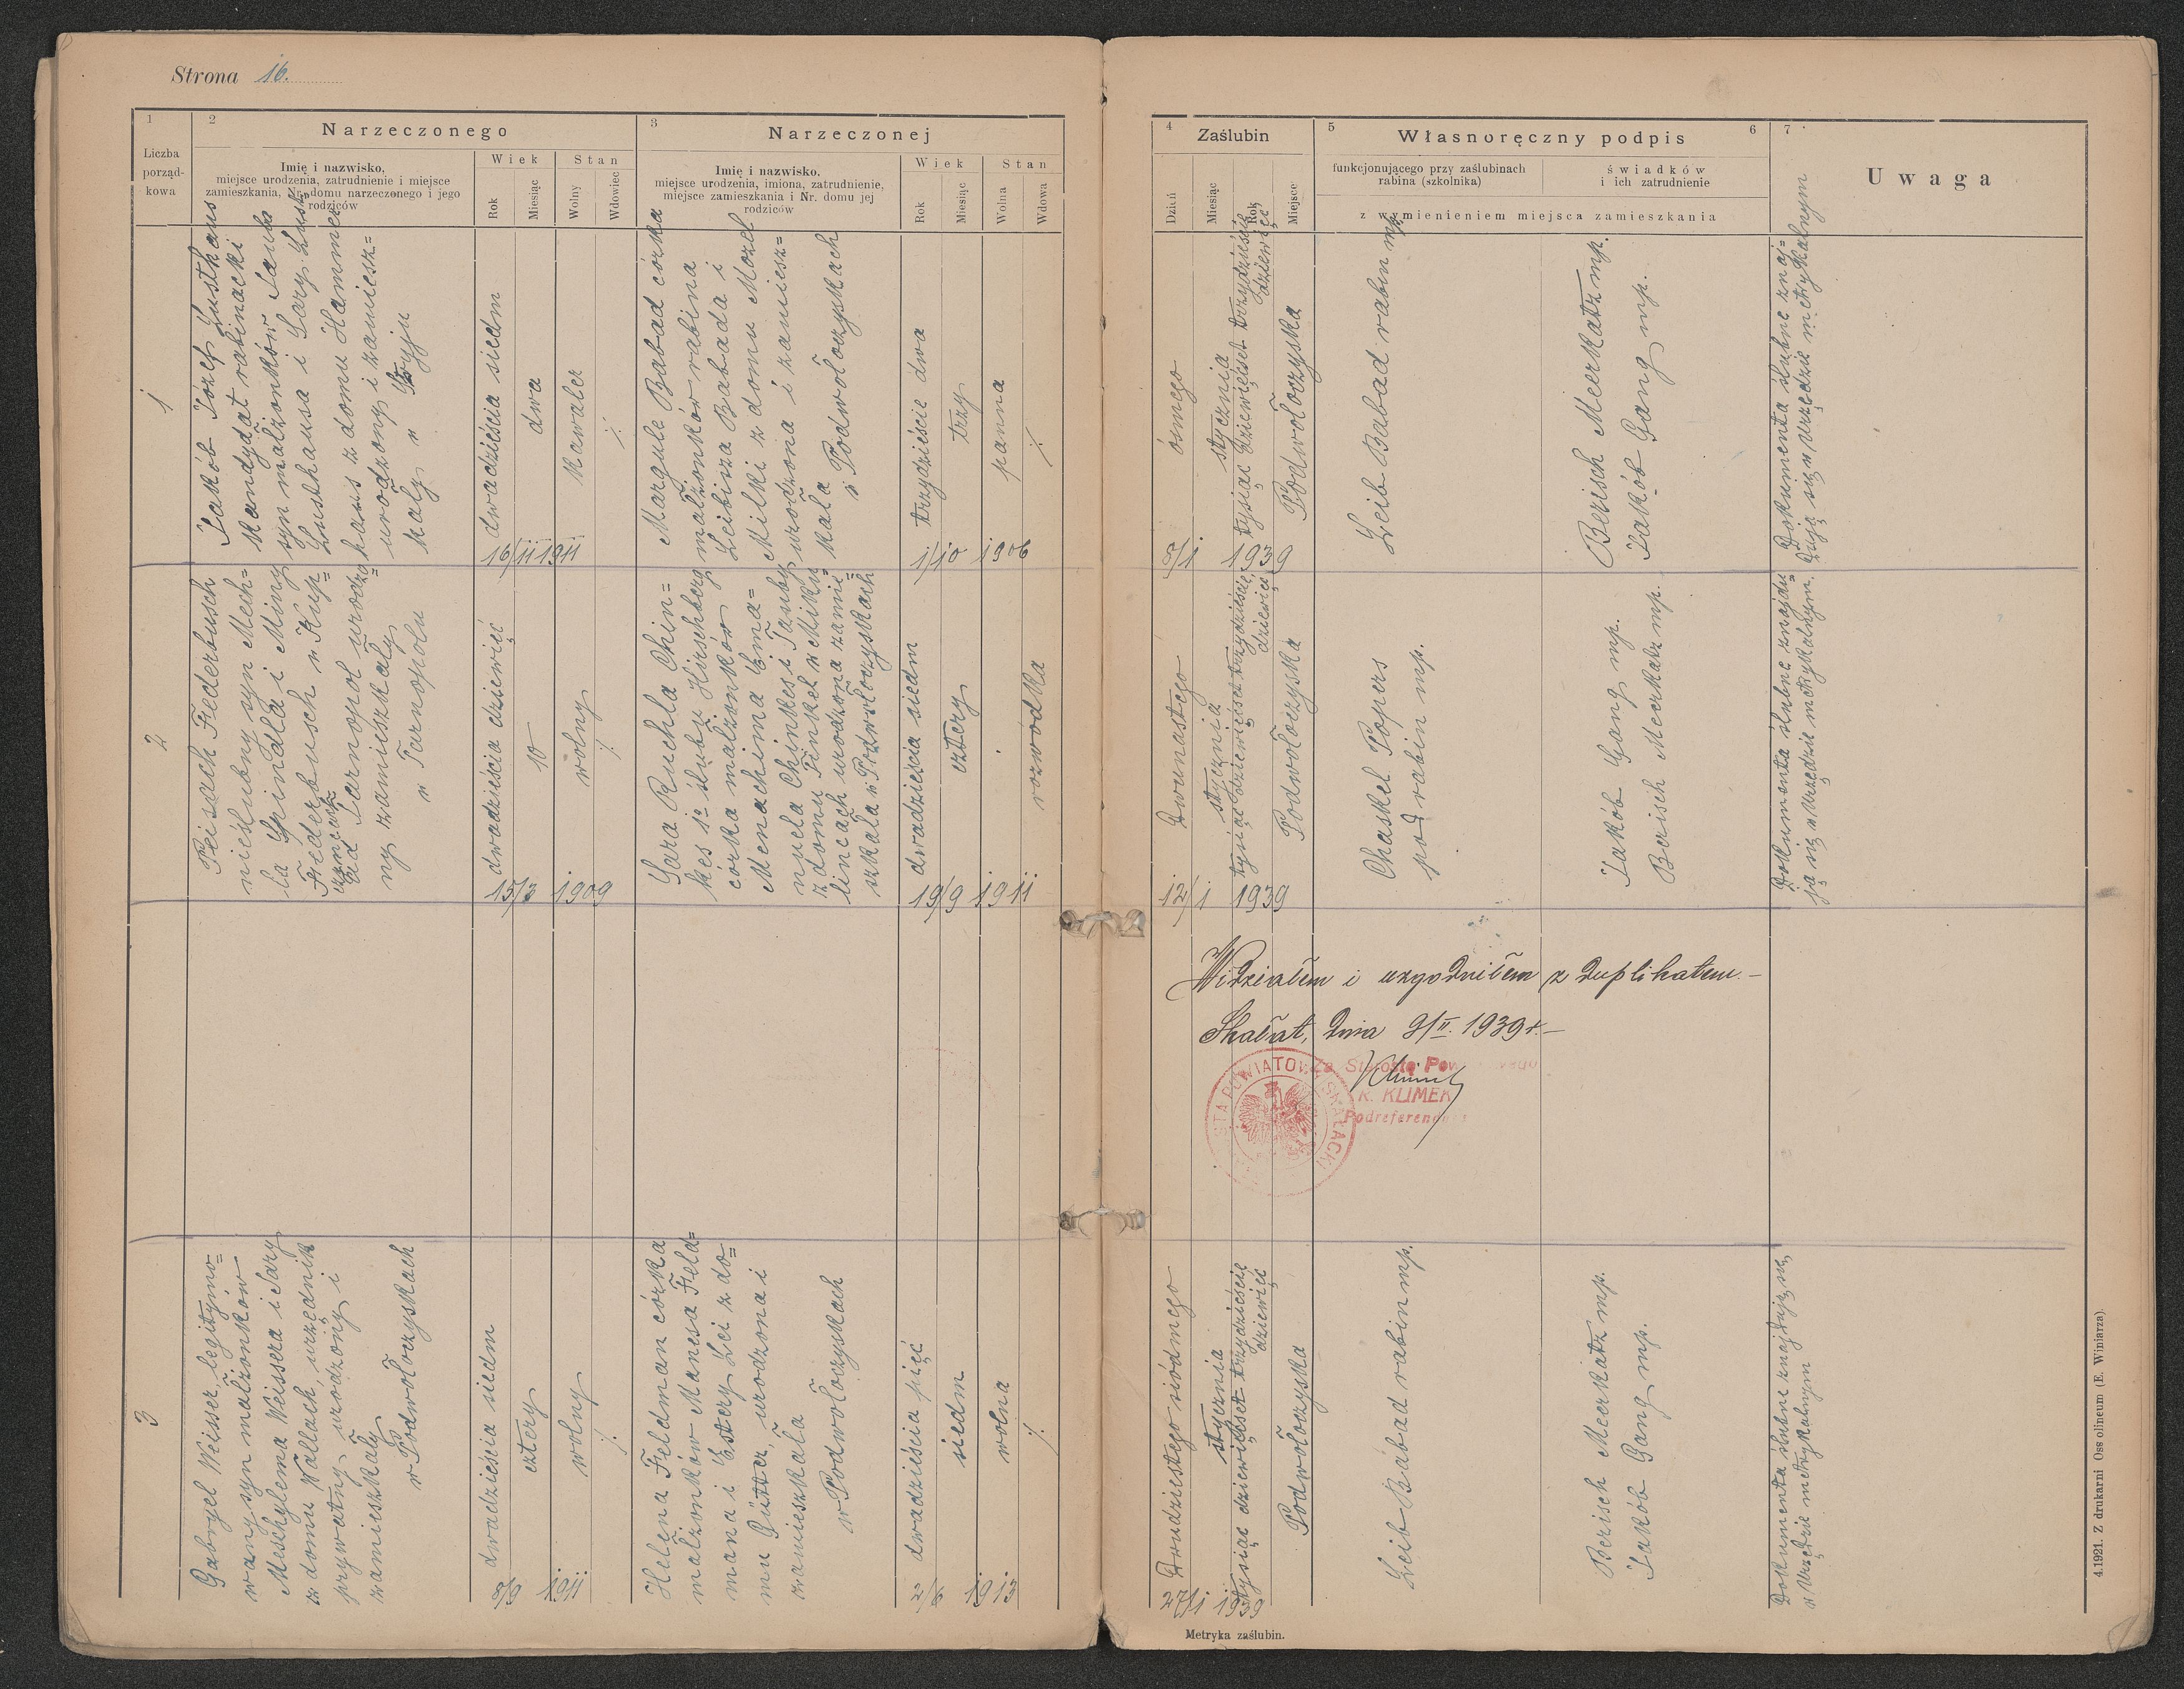 Strona 16.
1
Liczba
porząd-
kowa
2
Narzeczonego
Imię i nazwisko,
miejsce urodzenia, zatrudnienie i miejsce
zamieszkania, Nr. domu narzeczonego i jego
rodziców
Wiek
Rok
Miesiąc
Stan
Wolny
Wdowiec
3
Narzeczonej
Imię i nazwisko.
miejsce urodzenia, imiona, zatrudnienie,
miejsce zamieszkania i Nr. domu jej
rodziców
Wiek
Rok
Miesiąc
Stan
Wolna
Wdowa
4
Zaślubin
Dzień
Miesiąc
Rok
Miejsce
5
Własnoręczny podpis
6
funkcjonującego przy zaślubinach
rabina (szkolnika)
świadków
i ich zatrudnienie
z wymienieniem miejsca zamieszkania
7
Uwaga
1
Jakób Józef Lusthaus
kandydat rabinacki
syn małżonków Jank
Lusthausa i Sary Lust
haus z domu Hammer
urodzony i zamiesz=
kały w Stryju
dwadzieścia siedm
dwa
kawaler
./.
16/11 1911
Margule Babad córka
małżonków rabina
Leibisza Babada i
Milki z domu Mozel
urodzona i zamiesz=
kała w Podwołoczyskach
trzydzieście dwa
trzy
panna
./.
1/10 1906
ósmego
stycznia
tysiąc dziewięćset trzydzieście
dziewięć
Podwołoczyska
8/1 1939
Leib Babad rabin mp.
Berisch Meerkatz mp.
Jakób Gang mp.
Dokumenta ślubne znaj=
dują się w Urzędzie metrykalnym
2
Peisach Federbusch
nieślubny syn Mech=
la Spindla i Miny
Federbusch w Kup=
czyńcach
ad Tarnopol urodzo=
ny zamieszkały
w Tarnopolu
dwadzieścia dziewięć
10
wolny
./.
15/3 1909
Sara Ruchla Chin=
kes 1º ślubu Hirschberg
córka małżonków
Menachima Ema=
nuela Chinkes i Tauby
z domu Finkel w Miku
lińcach urodzona zamie=
szkała w Podwołoczyskach
dwadzieścia siedm
cztery
rozwódka
19/9 1911
Dwunastego
stycznia
tysiąc dziewięćset trzydzieście
dziewięć
Podwołoczyska
12/1 1939
Chaskel Popers
pod rabin mp.
Jakób Gang mp.
Berisch Meerkatz mp.
Dokumenta ślubne znajdu=
ją się w Urzędzie metrykalnym.
Widziałem i uzgodniłem z duplikatem.-
Skałat, dnia 9/II. 1939 r.-
Za Starostę Powiatowego
K. KLIMEK
Podreferendarz
STAROSTA POWIATOWY SKAŁACKI
3
Gabryel Weisser legitymo=
wany syn małżonków
Meschylema Weissera i Sary
z domu Wallach, urzędnik
prywatny, urodzony i
zamieszkały
w Podwołoczyskach
dwadzieścia siedm
cztery
wolny
./.
8/9 1911
Helena Feldman córka
małżonków Manesa Feld=
mana i Estery Lei z do=
mu Gütter, urodzona i
zamieszkała
w Podwołoczyskach
dwadzieścia pięć
siedm
wolna
./.
2/6 1913
Dwudziestego siódmego
stycznia
tysiąc dziewięćset trzydzieście
dziewięć
Podwołoczyska
27/1 1939
Leib Babad rabin mp.
Berisch Meerkatz mp.
Jakób Gang mp.
Dokumenta ślubne znajdują się
w Urzędzie metrykalnym
Metryka zaślubin.
4.1921. Z drukarni Ossolineum (E. Winiarza).